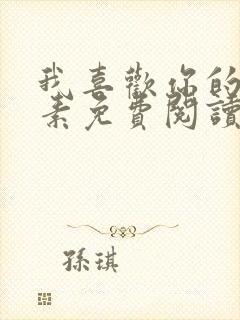 我喜歡你的
素免費閱讀
孫琪